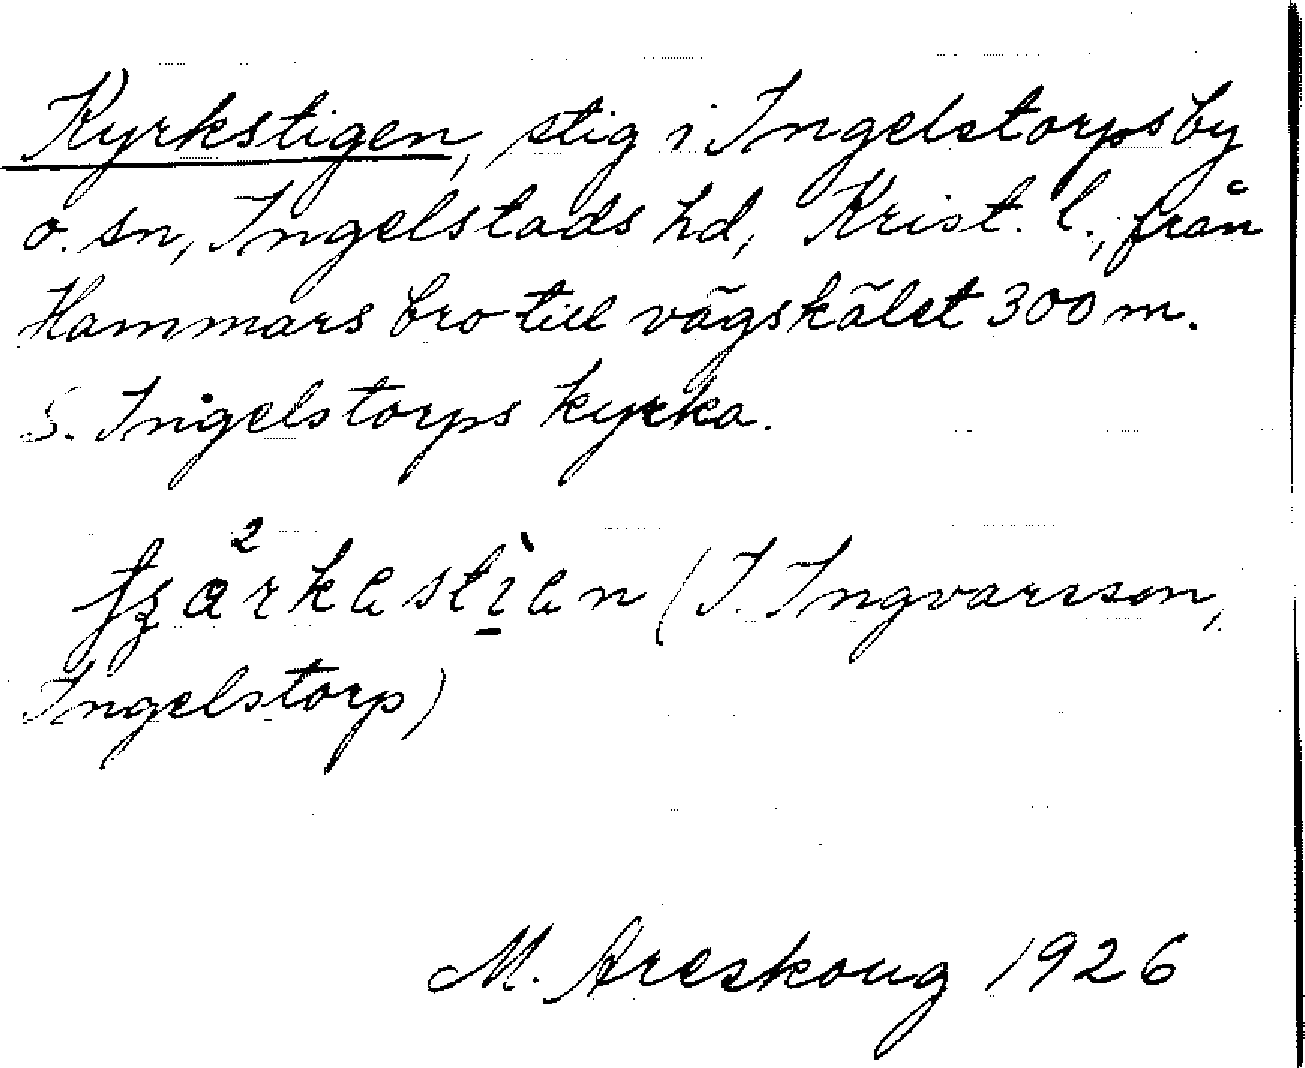 Kyrkstigen, stig i Ingelstorps by
o. sn, Ingelstads hd, Krist. l., från
Hammars bro till vägskälet 300 m.
S. Ingelstorps kyrka.
(I. Ingvarsson,
Ingelstorp)
M. Areskoug 1926